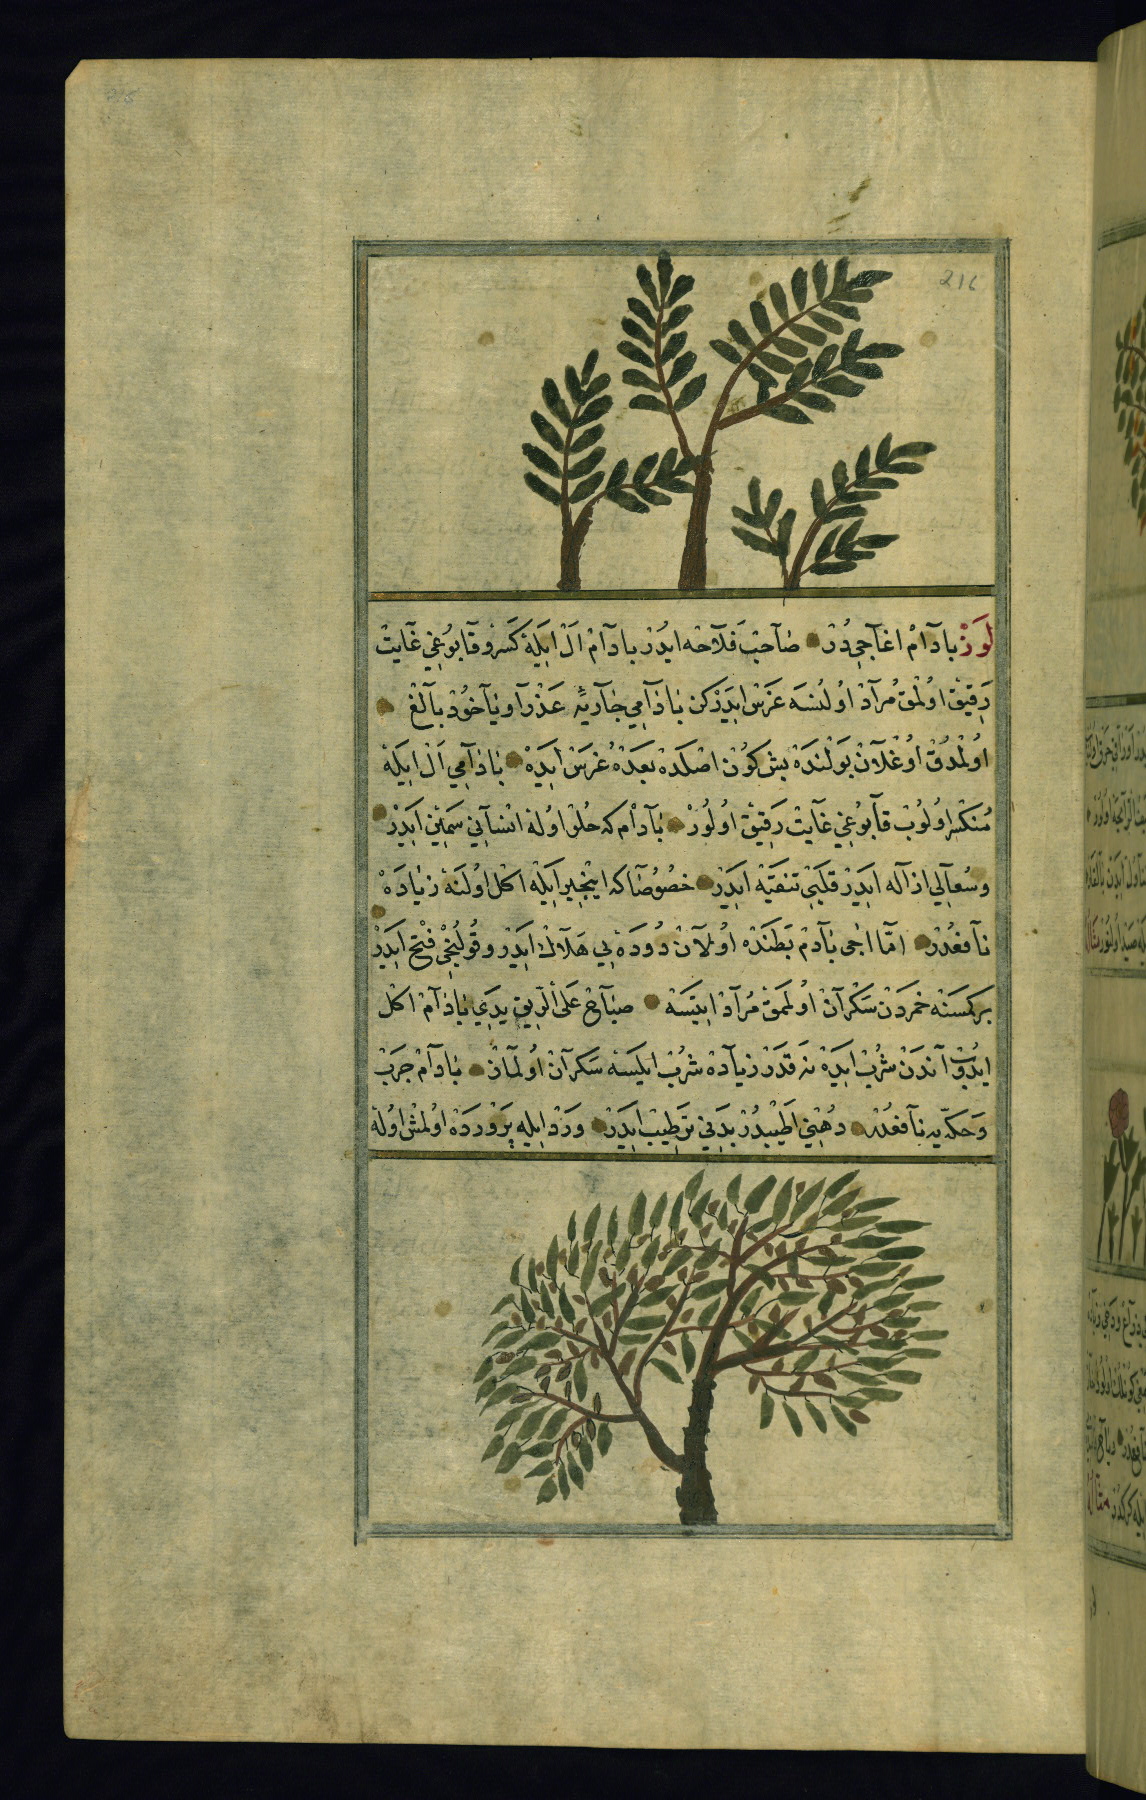 216
لَوَزْ بادَآمْ اغاَجيِدُرْ صَاحِبْ فَلَاحَه ايدُرْ بادَآمْ اَلْ ايَلِهْ كَسْرُ و قاَبوُغيِ غَايَتْ
رَقِيقْ اوُلْمَقْ مُرَآدْ اوُلُنسَه غَرَسْ ايَدَرْكَن باَذَامِي جاَرِيَهٔ عَذْرآَ و ياَخُوذْ باَلَغْ
اوُلْمَدُقْ اوُغْلاَنْ بَوْلِنْدَهْ بَشْ كوُنْ اصْلَدَهْ بَعْدَهُ غَرَسْ ايَدَهْ باَذَامِي اَلْ ايَلِهْ
مُنكَسِرْ اوُلُوبْ قاَبوُغيِ غَايَتْ رَقِيقْ اوُلُورْ باَدَآمْ كه حُلوْ اوُلَهْ انْسَانِي سَمِينْ ايَدَرْ
وسُعآَلي ازآله ايَدَرْ قَلْبَنِي تَنقِيَهْ ايَدَرْ خُصُوصًا كه اِنْجِيرْ ايَلِهْ اكل اوُلُنَهْ زِيَادَهْ
ناَفِعْدُرْ امَّا اَجي باَدَمْ بَطْنَدَه اوُلاَنْ دُودَه يِي هَلَاكْ ايَدَرْ و قُولُنْجِي فَتحْ ايَدَرْ
بَركِمْسَنه خَمرَدَنْ سَكْرَآنْ اوُلْمَمَقْ مُرَآدْ ايَتْسَهْ صَبَآحْ عَلَى ٱلرِّيقْ يَدِي باَذَآمْ اكل
ايدُوبْ آندَنْ شُربْ ايَدَهْ نَه قَدَرْ زِيَادَهْ شُربْ ايَلَسَهْ سَكْرَآنْ اوُلْماَزْ باَدَآمْ جَرَبْ
وَحِكّه يَه ناَفِعْدُرْ دُهْنِي اَطْيَبْدُرْ بَدَنِي تَرطِيبْ ايَدَرْ وَرْدْ ايلِه پَرْوَرْدَهْ اوُلْمِشْ اوُلَهْ